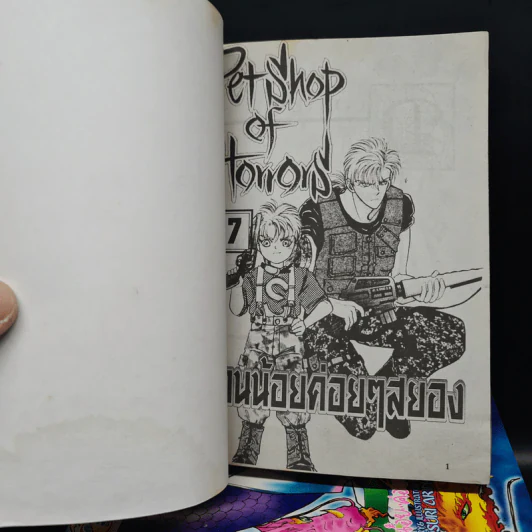 Pet Shop
of
Horrors
7
านน้อยค่อยๆสยอง
1